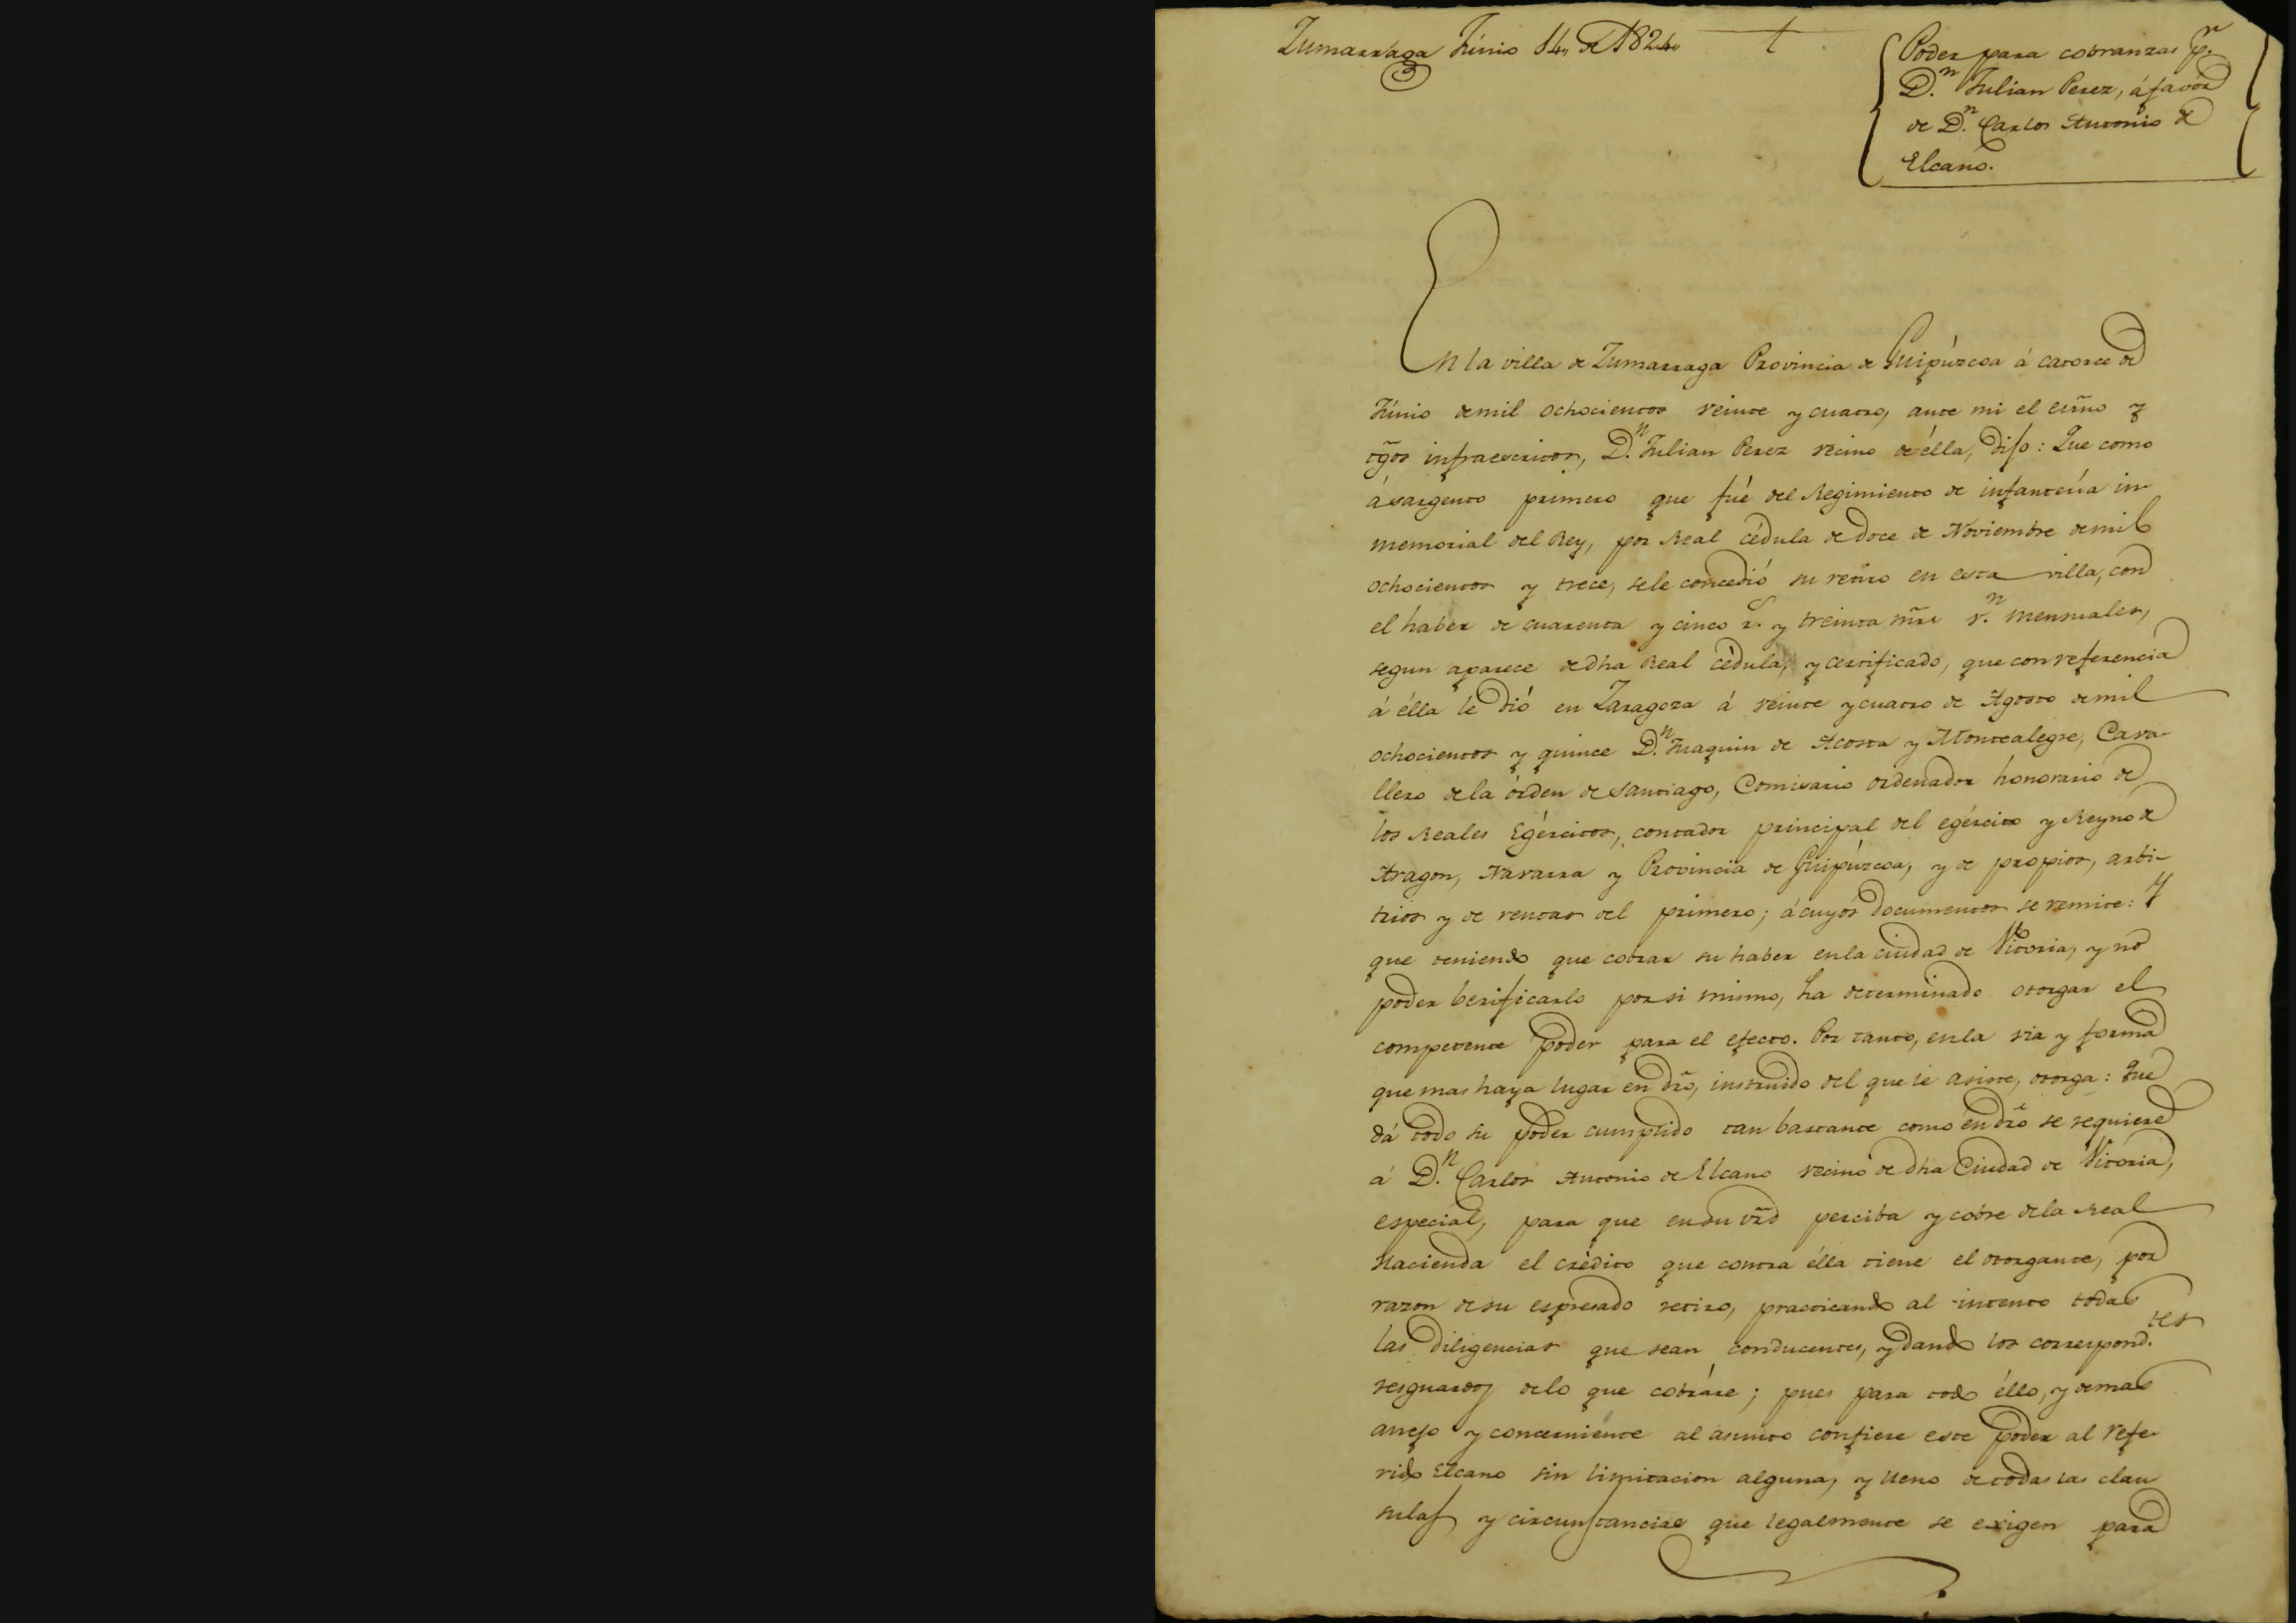 Zumarraga Júnio 14, de 1824
Poder para cobranzas p.r
D.n Julian Perez, á favor
de D.n Carlos Antonio de
Elcano.
En la villa de Zumarraga Provincia de Guipúzcoa á catorce de
Júnio de mil ochocientos veinte y cuatro, ante mi el esño y
tgõs infraescritos, D.n Julian Perez vecino de élla, dijo: Que como
á sargento primero que fué del Regimiento de infantería in-
memorial del Rey, por Real cédula de doce de Noviembre de mil
ochocientos y trece, se le concedió su retiro en esta villa, con
el haber de cuarenta y cinco r.s y treinta mrs v.n mensuales,
segun aparece de dha Real cédula, y certificado, que con referencia
á élla le dió en Zaragoza á veinte y cuatro de Agosto de mil
ochocientos y quince D.n Juaquin de Acosta y Montealegre, Cava-
llero de la órden de Santiago, Comisario ordenador honorario de
los Reales Egércitos, contador principal del egército y Reyno de
Aragon, Navarra y Provincia de Guipúzcoa, y de propios, arbi-
trios y de rentas del primero; á cuyos documentos se remite: Y
que teniendo que cobrar su haber en la ciudad de Vitoria, y no
poder berificarlo por si mismo, ha determinado otorgar el
competente poder para el efecto. Por tanto, en la via y forma
que mas haya lugar en dro, instruido del que le asiste, otorga: Que
dá todo su poder cumplido tan bastante como en dro se requiere
á D.n Carlos Antonio de Elcano vecino de dha Ciudad de Vitoria,
especial, para que en su vrd perciba y cobre de la Real
Hacienda el crédito que contra élla tiene el otorgante, por
razon de su espresado retiro, practicando al intento todas
las diligencias que sean conducentes, y dando los correspond.tes
resguardos de lo que cobráre; pues para todo éllo, y demas
anejo y concerniente al asunto confiere este poder al refe-
rido Elcano sin limitacion alguna, y lleno de todas las clau
sulas y circunstancias que legalmente se exigen para